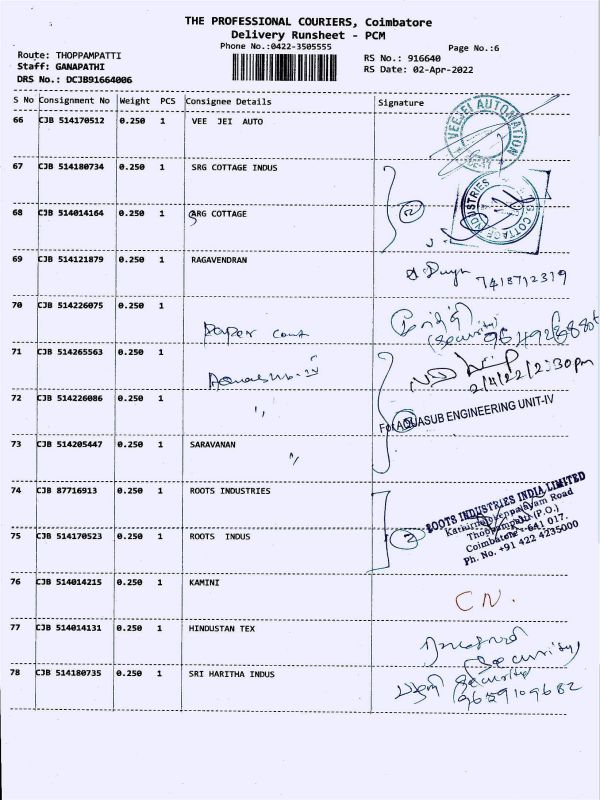 THE PROFESSIONAL COURIERS, Coimbatore
Delivery Runsheet - PCM
Phone No.:0422-3505555
Page No.:6
Route: THOPPAMPATTI
RS No.: 916640
Staff: GANAPATHI
RS Date: 02-Apr-2022
DRS No.: DCJB91664006
S No Consignment No Weight PCS Consignee Details Signature
66 CJB 514170512 0.250 1 VEE JEI AUTO
VEEJEI AUTOMATION
67 CJB 514180734 0.250 1 SRG COTTAGE INDUS
68 CJB 514014164 0.250 1 SRG COTTAGE
2
COTTAGE INDUSTRIES
69 CJB 514121879 0.250 1 RAGAVENDRAN
7418712319
70 CJB 514226075 0.250 1
Paper Cont
(Security)
71 CJB 514265563 0.250 1
2/4/22/2:30pm
72 CJB 514226086 0.250 1 ,,
For AQUASUB ENGINEERING UNIT-IV
73 CJB 514205447 0.250 1 SARAVANAN
74 CJB 87716913 0.250 1 ROOTS INDUSTRIES
75 CJB 514170523 0.250 1 ROOTS INDUS
2
ROOTS INDUSTRIES INDIA LIMITED
Kathirnaickenpalayam Road
Thoppampatti (P.O.)
Coimbatore - 641 017.
Ph. No. +91 422 4235000
76 CJB 514014215 0.250 1 KAMINI
CN.
77 CJB 514014131 0.250 1 HINDUSTAN TEX
Security
78 CJB 514180735 0.250 1 SRI HARITHA INDUS
Security
9659109682